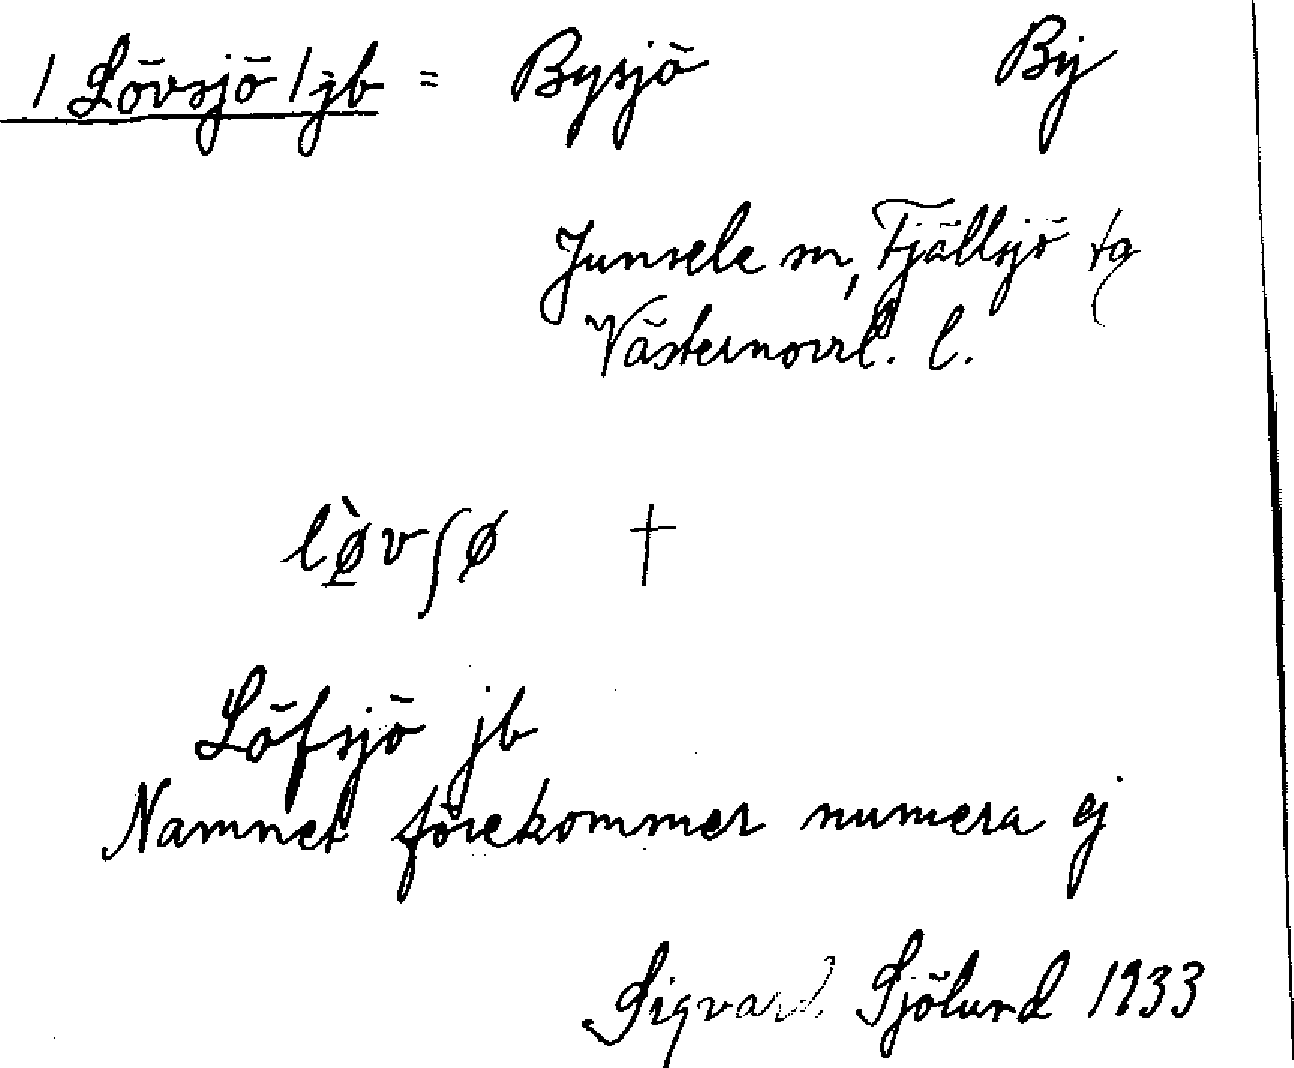 / Lövsjö / jb = Bysjö By
Junsele sn, Fjällsjö tg
Västernorrl. l.
lø̱̀vʃø †
Löfsjö jb
Namnet förekommer numera ej
Sigvard Sjölund 1933